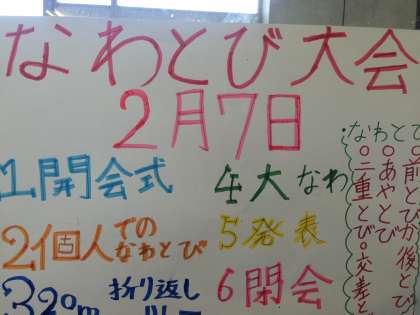 なわとび大会
2月7日
1開会式
2個人での
なわとび
320m 折り返し
4大なわ
5発表
6閉会
なわとび
○前とび○後とび
○あやとび
○二重とび○交差と